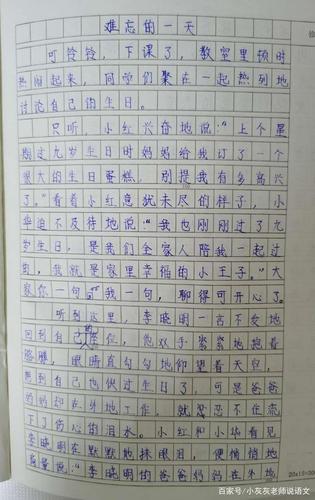 难忘的一天
叮铃铃，下课了，教室里顿时
热闹起来，同学们聚在一起热烈地
讨论自己的生日。
只听，小红兴奋地说："上个星
期过九岁生日时妈妈给我订了一个
很大的生日蛋糕，别提我有多高兴
了。"看着小红意犹未尽的样子，小
华迫不及待地说："我也刚刚过了九
岁生日，是我们全家人陪我一起过
的，我就是家里幸福的小王子。"大
家你一句我一句，聊得可开心了。
听到这里，李晓明一言不发地
回到自己的座位，他双手紧紧地抱着
胳膊，眼睛直勾勾地仰望着天空，
想到自己也快过生日了，可是爸爸
妈妈都在外地工作，就忍不住流
下了伤心的泪水。小红和小华看见
李晓明在默默地抹眼泪，便悄悄地
说："李晓明的爸爸妈妈在外地
20×15=300
百家号/小灰灰老师说语文